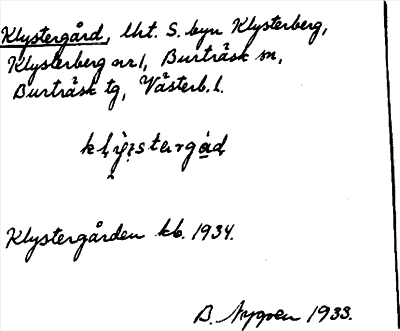 Klystergård, Utt. S. byn Klysterberg,
Klysterberg nr 1, Burträsk sn,
Burträsk tg, Västerb. l.
Klystergården kb. 1934.
B. Nygren 1933.